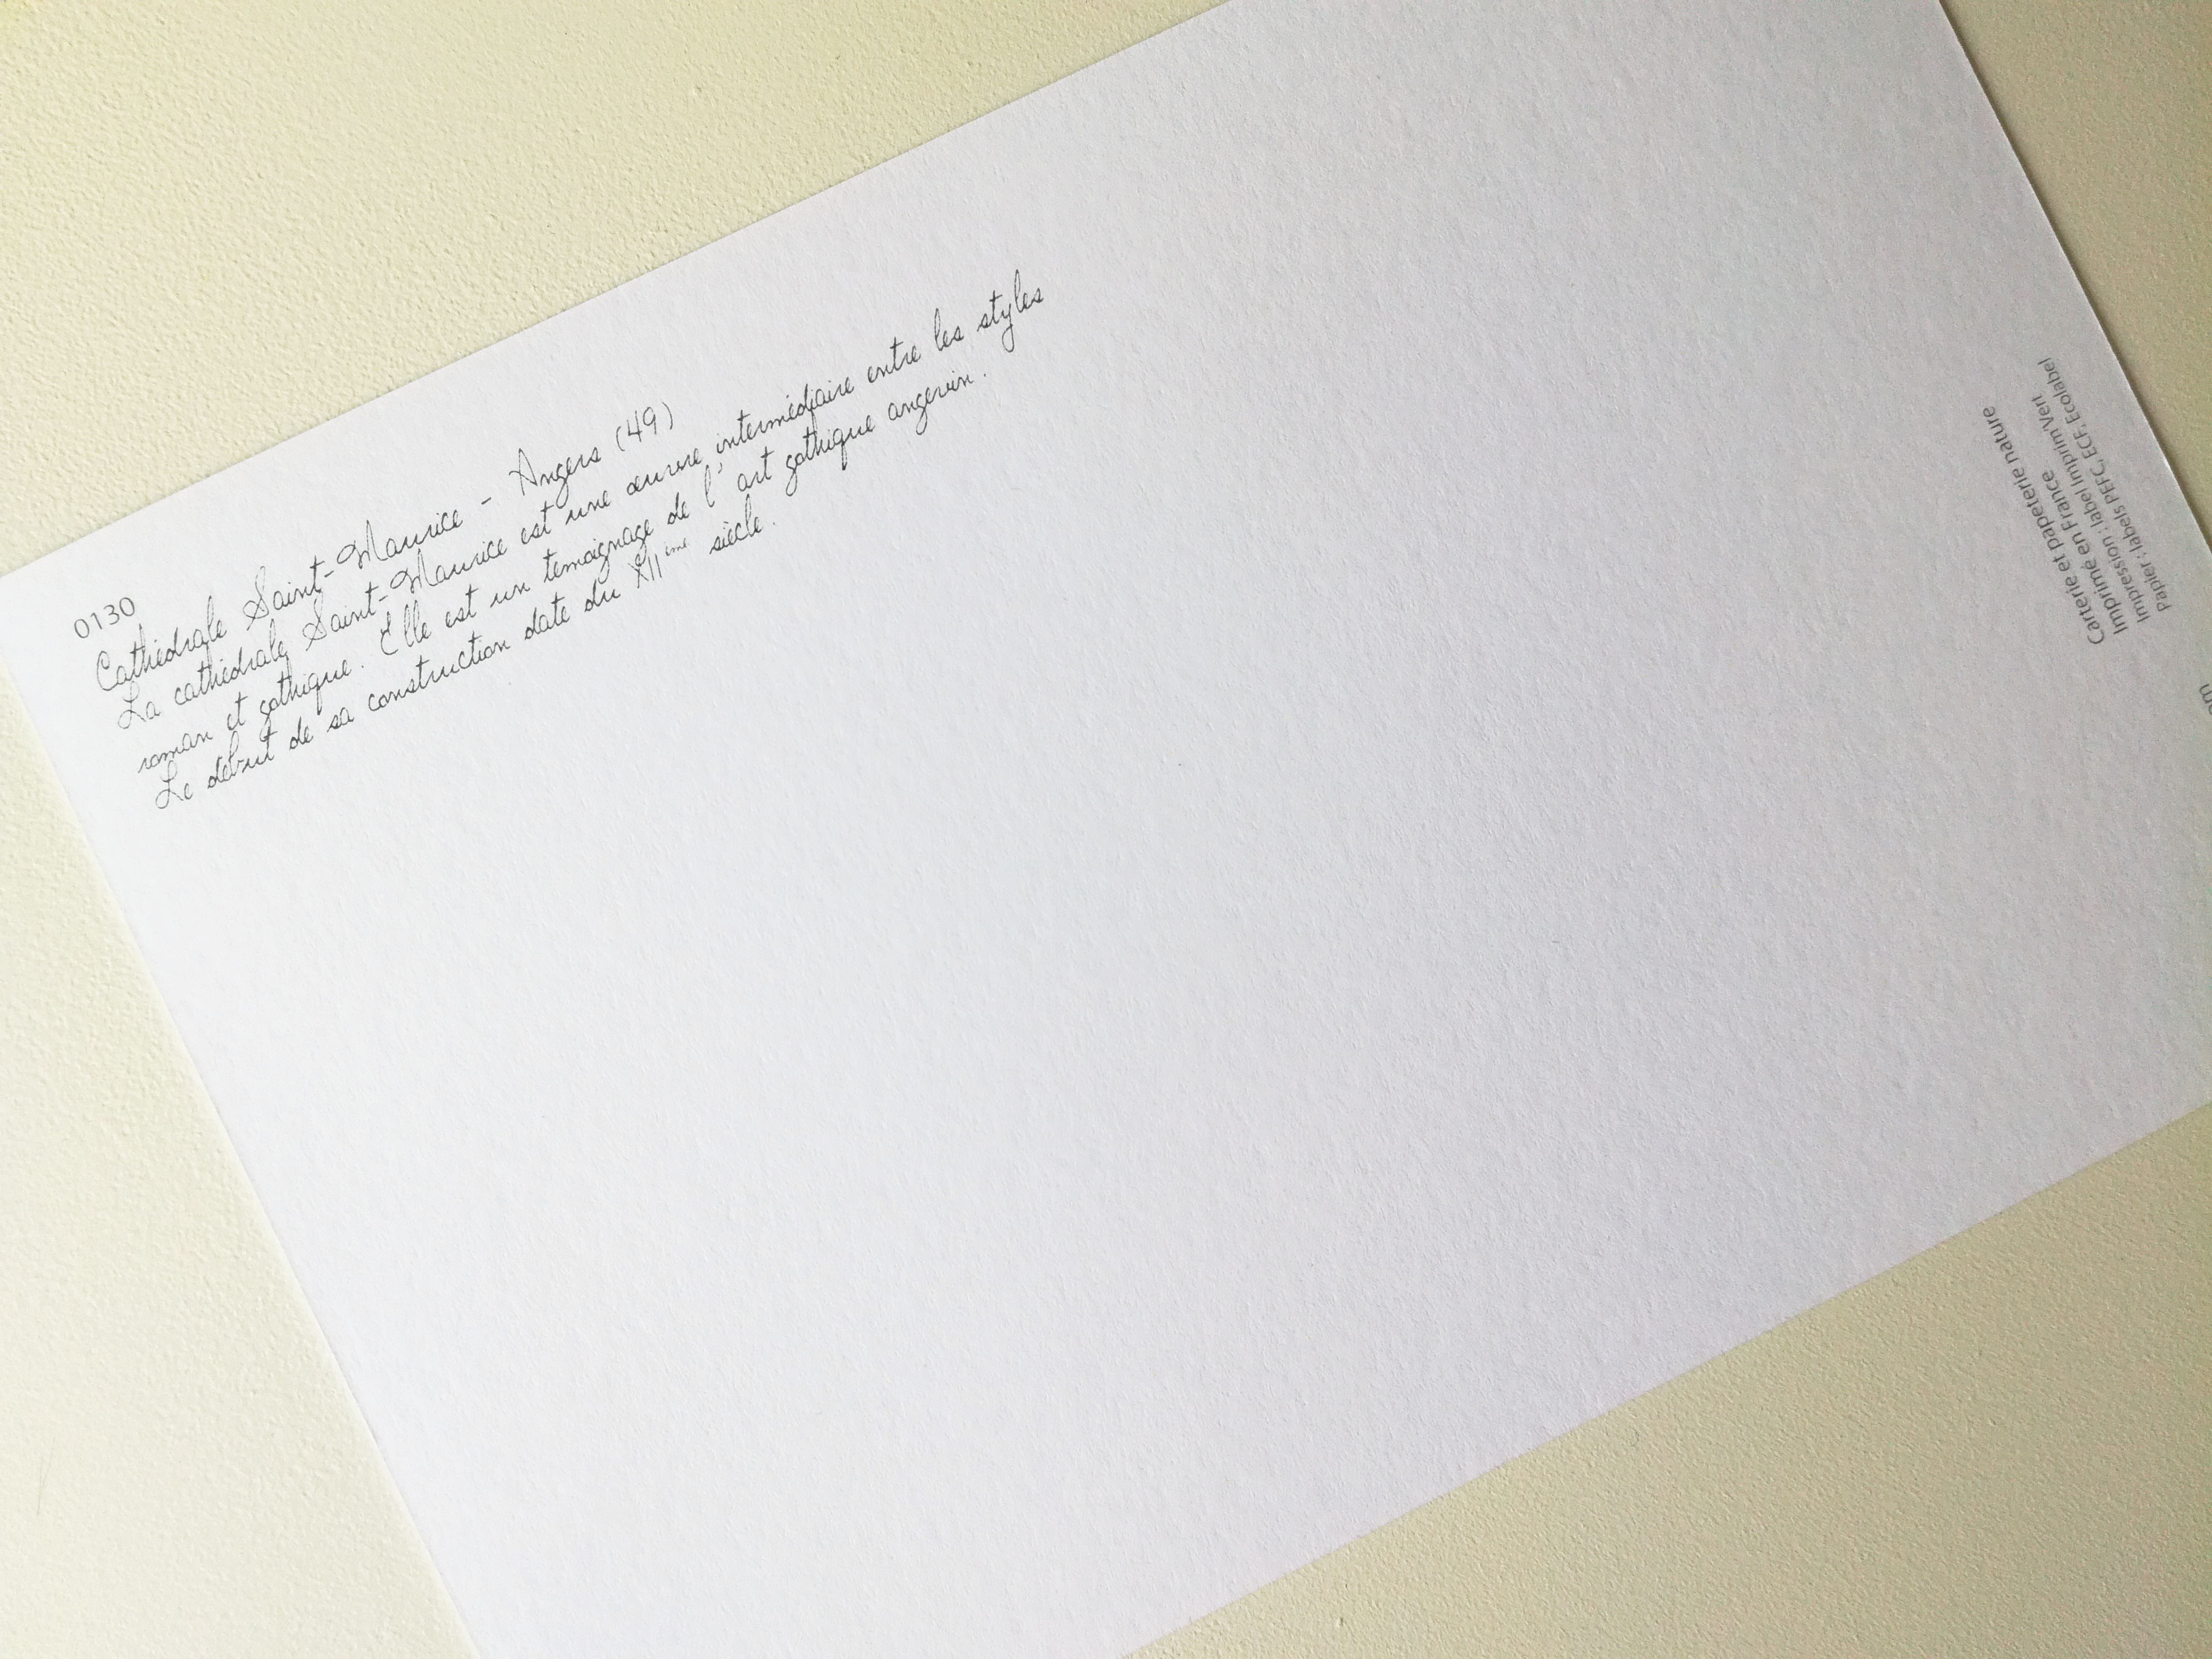 0130
Cathédrale Saint-Maurice - Angers (49)
La cathédrale Saint-Maurice est une œuvre intermédiaire entre les styles
roman et gothique. Elle est un témoignage de l'art gothique angevin.
Le début de sa construction date du XIIième siècle.
Carterie et papeterie nature
Imprimé en France
Impression : label Imprim'Vert
Papier : labels PEFC, ECF, Ecolabel